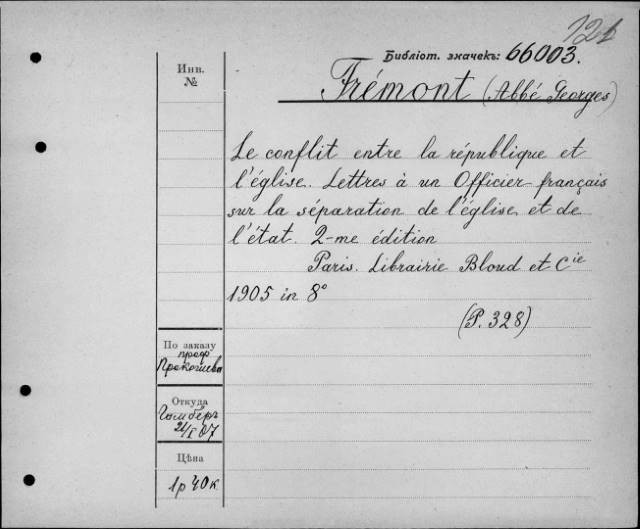 121
Библіот. значекъ: 66003.
Инв.
№
Frémont (Abbé Georges)
Le conflit entre la république et
l'église. Lettres à un Officier français
sur la séparation de l'église et de
l'état. 2-me édition
Paris. Librairie Bloud et Cie
1905 in 8°
(P. 328)
По заказу
проф
Прокошева
Откуда
Гомбергъ
21/I 07
Цѣна
1р 40к